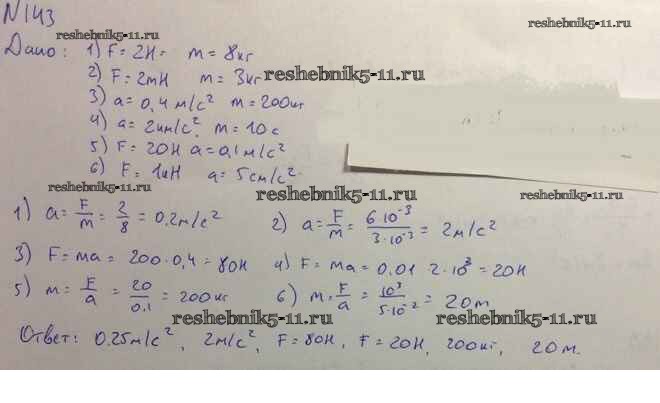 N143
reshebnik5-11.ru
reshebnik5-11.ru
Дано: 1) F = 2H = m = 8кг
2) F = 2mH m = 3кг reshebnik5-11.ru
3) a = 0,4 м/с² m = 200кг
4) a = 2км/с² m = 10с
5) F = 20H a = 0,1 м/с²
6) F = 1кH a = 5см/с²
reshebnik5-11.ru reshebnik5-11.ru reshebnik5-11.ru
1) a = F/m = 2/8 = 0.2м/с² 2) a = F/m = 6·10⁻³/3·10⁻³ = 2м/с²
3) F = ma = 200·0,4 = 80H 4) F = ma = 0.01·2·10³ = 20H
5) m = F/a = 20/0.1 = 200кг 6) m = F/a = 10³/5·10⁻² = 20т
reshebnik5-11.ru reshebnik5-11.ru
Ответ: 0.25м/с², 2м/с², F = 80H, F = 20H, 200кг, 20т.